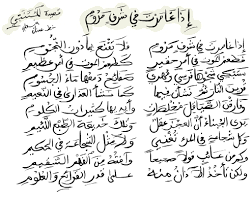 إذا غامرت في شرف مروم
قصيدة للمتنبي
إذا غامرت في شرف مروم فلا تقنع بما دون النجوم
فطعم الموت في أمر حقير كطعم الموت في أمر عظيم
ستبكي شجوها فرسي ومهري صفائح دمعها ماء الجسوم
قربن النار ثم نشأن فيها كما نشأ العذارى في النعيم
وفارقن الصياقل مخلصات وأيديها كثيرات الكلوم
يرى الجبناء أن العجز عقل وتلك خديعة الطبع اللئيم
وكل شجاعة في المرء تغني ولا مثل الشجاعة في الحكيم
وكم من عائب قولا صحيحا وآفته من الفهم السقيم
ولكن تأخذ الآذان منه على قدر القرائح والعلوم